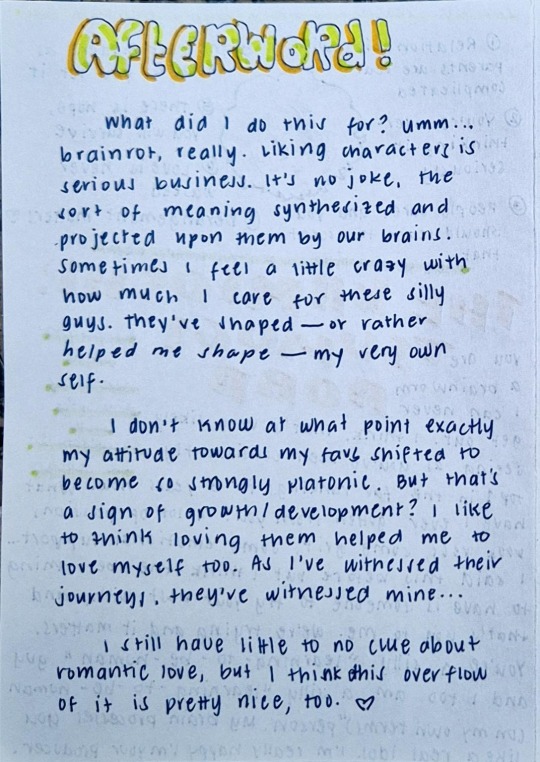 AFTERWORD!
What did I do this for? umm...
brainrot, really. Liking characters is
serious business. It's no joke, the
sort of meaning synthesized and
projected upon them by our brains.
Sometimes I feel a little crazy with
how much I care for these silly
guys. They've shaped — or rather
helped me shape — my very own
self.
I don't know at what point exactly
my attitude towards my favs shifted to
become so strongly platonic. But that's
a sign of growth/development? I like
to think loving them helped me to
love myself too. As I've witnessed their
journeys, they've witnessed mine...
I still have little to no clue about
romantic love, but I think this overflow
of it is pretty nice, too. ♡